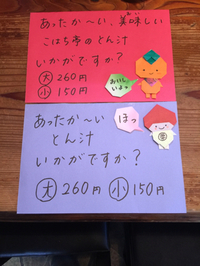 あったか〜い、美味しい
こはち亭のとん汁
いかがですか？
大 260円
小 150円
おいしいよっ
あったか〜い
とん汁
いかがですか？
ほっ
大 260円 小 150円